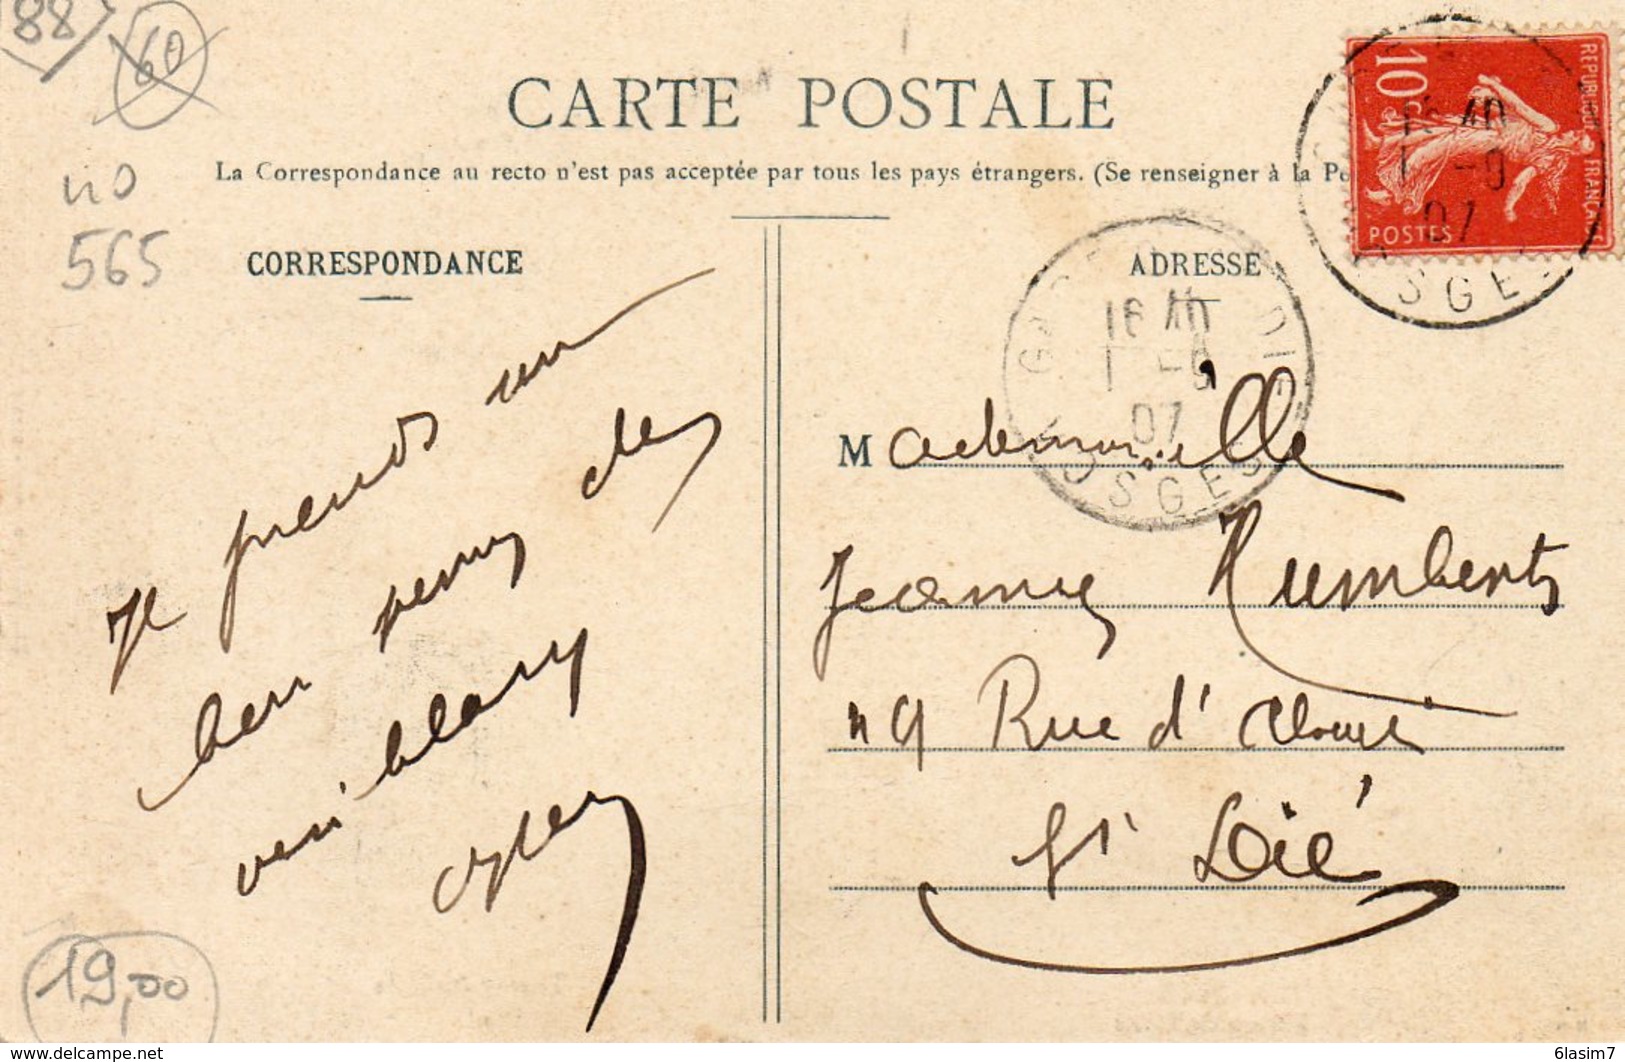 88
60
CARTE POSTALE
La Correspondance au recto n'est pas acceptée par tous les pays étrangers. (Se renseigner à la Po
no
565
CORRESPONDANCE
ADRESSE
REPUBLIQUE FRANÇAISE
10c
POSTES
16 40
1 -9
07
OSGES
16 40
1 -9
07
VOSGES
Je prends un
bon
des
Mademoiselle
Jeanne Humbert
49 Rue d'
St Dié
19,00
www.delcampe.net
6lasim7